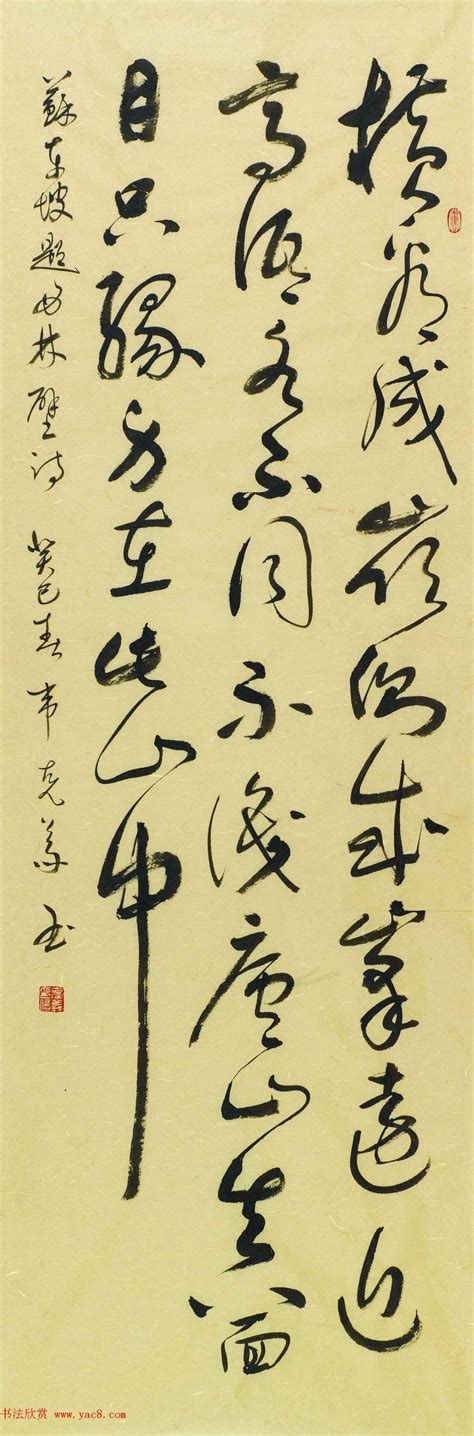 橫看成嶺側成峯遠近
高低各不同不識廬山真面
目只緣身在此山中
蘇東坡題西林壁诗 癸巳春 韦克義书
书法欣赏 www.yac8.com